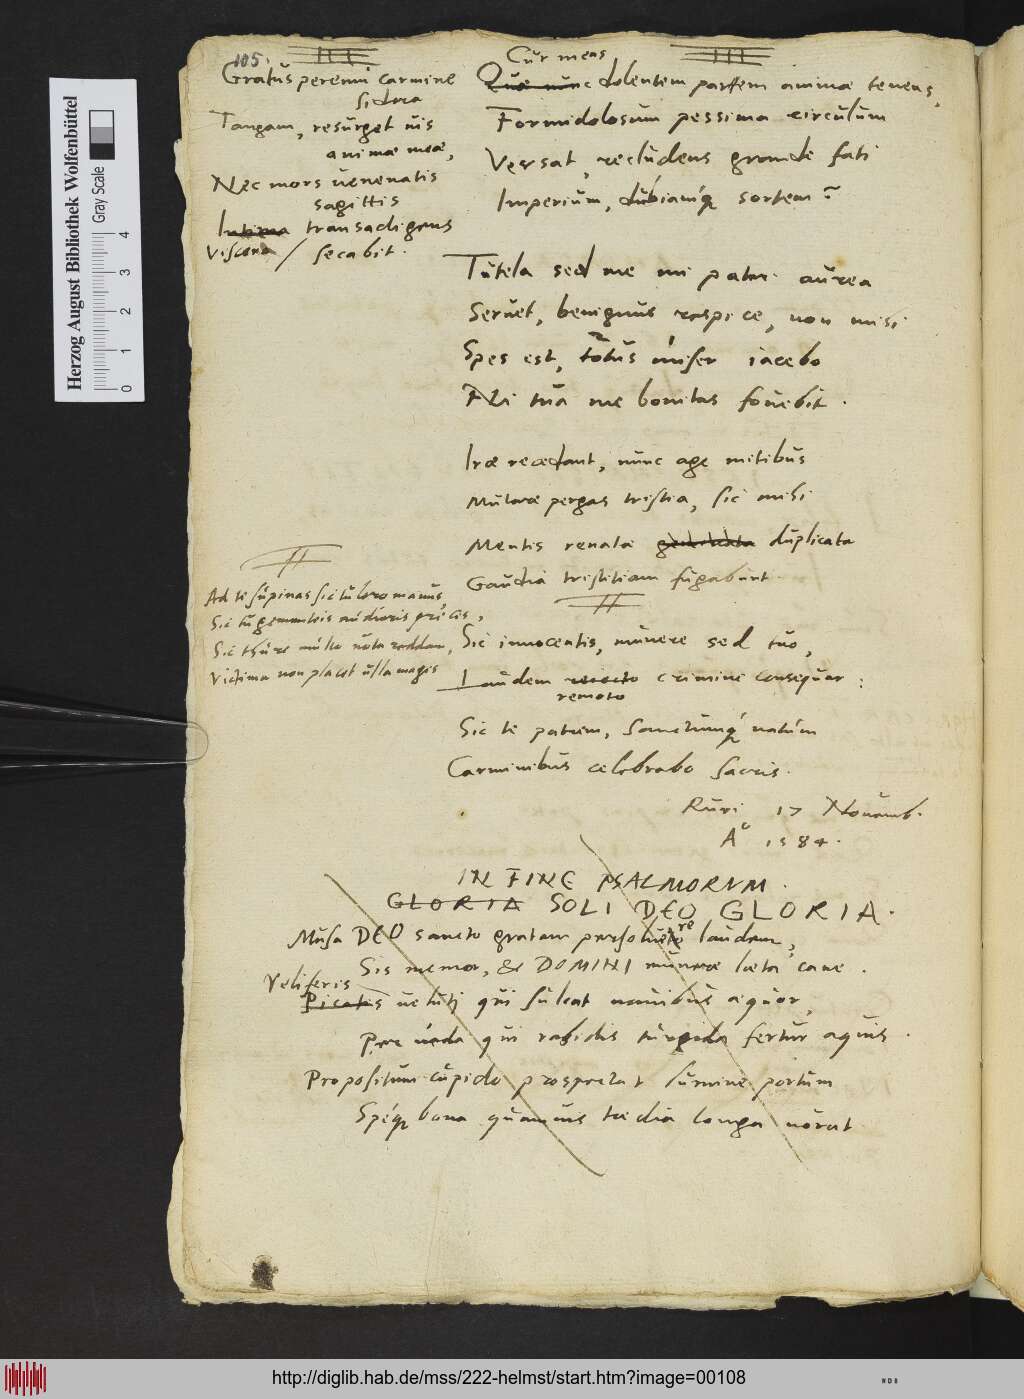 105.
Gratus perenni carmine
sidera
Tangam, resurget uis
animae meae,
Nec mors uenenatis
sagittis
Intima transadigens
Viscera / secabit.
Cur meas
Quae nunc dolentem partem animae tenens,
Formidolosum pessima circulum
Versat, recludens grande fati
Imperium, dubiamq́ sortem?
Tutela sed me mi pater aurea
Seruet, benignus respice, non nisi
Spes est, totus miser iacebo
Ni tua me bonitas fouebit.
Irae recedant, nunc age mitibus
Mutare pergas tristia, sic mihi
Mentis renatae duplicata
Gaudia tristitiam fugabunt.
Ad te supinas sic tulero manus,
Sic tu gementeis audieris preces,
Sic thure multo uota reddam,
Victima non placet ulla magis
Sic innocentis, munere sed tuo,
Laudem reiecto crimine consequar:
remoto
Sic te patrem, sanctumq́ natum
Carminibus celebrabo sacris.
Ruri 17 Nouemb.
A° 1584.
IN FINE PSALMORVM.
GLORIA SOLI DEO GLORIA.
Musa DEO sancto gratam persoluere laudem,
Sis memor, & DOMINI munere laeta cane.
Veliferis
Picatis uelutj qui sulcat nauibus aequor,
Per uada qui rabidis turgida fertur aquis.
Propositum cupido prospectat lumine portum
Speq́ bona quamuis taedia longa uorat
Herzog August Bibliothek Wolfenbüttel
Gray Scale
0 1 2 3 4
http://diglib.hab.de/mss/222-helmst/start.htm?image=00108